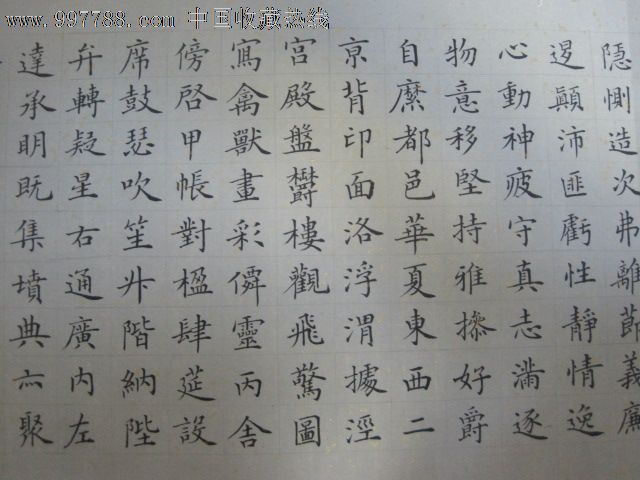 www.997788.com 中国收藏热线
隱惻造次弗離節義廉
退顛沛匪虧性靜情逸
心動神疲守真志滿逐
物意移堅持雅操好爵
自縻都邑華夏東西二
亰背邙面洛浮渭據涇
宮殿盤欝樓觀飛驚圖
寫禽獸畫彩僊靈丙舍
傍啓甲帳對楹肆筵設
席鼓瑟吹笙升階納陛
弁轉疑星右通廣内左
達承明既集墳典亦聚